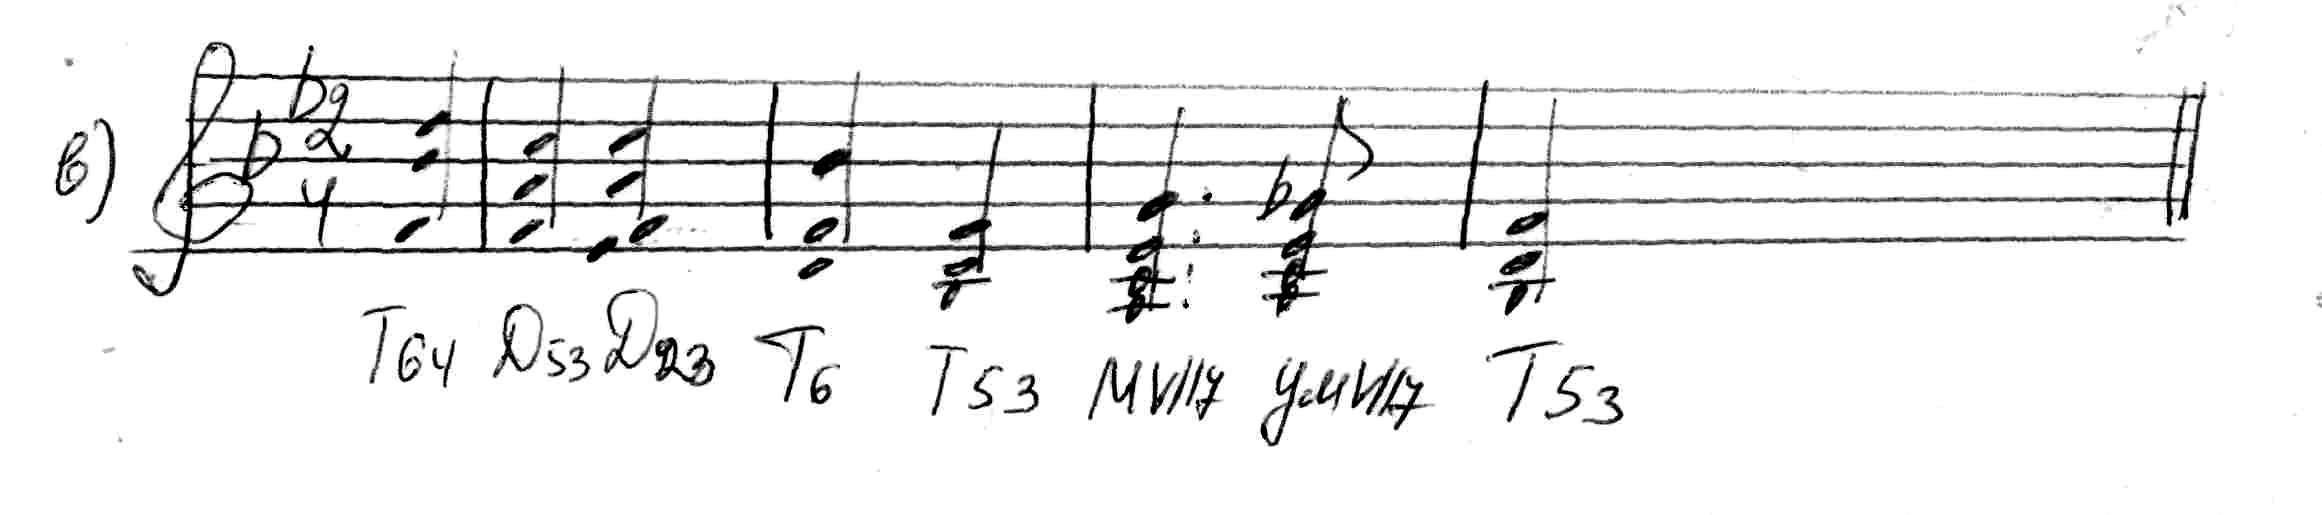 в)
2
4
Т64 D53 D23 Т6 Т53 МVII7 УмVII7 Т53